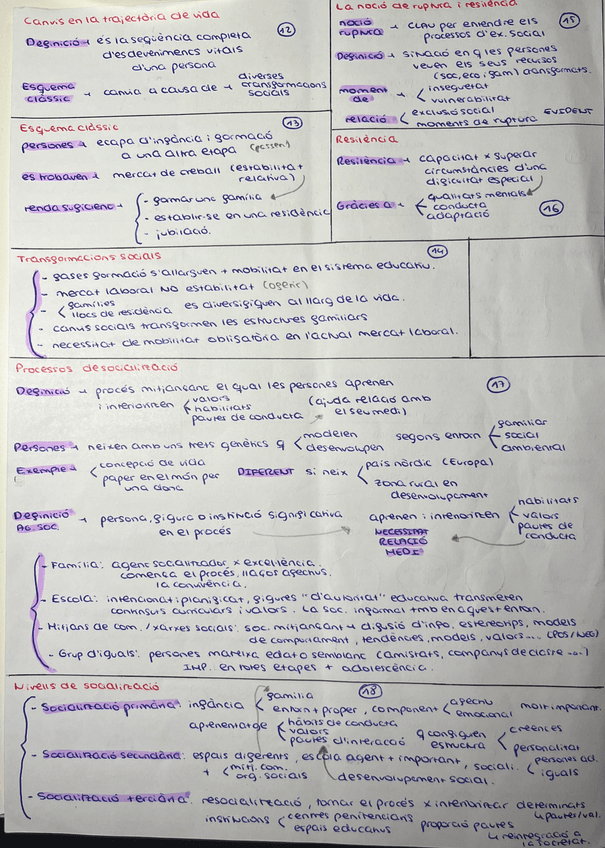 Canvis en la trajectòria de vida
12
Definició → és la seqüència completa
d'esdeveniments vitals
d'una persona
Esquema clàssic → canvia a causa de → diverses transformacions socials
La noció de ruptura i resiliència
15
noció ruptura → clau per entendre els
processos d'ex. social
Definició → situació en q les persones
veuen els seus recursos
(soc, eco i fam) transformats.
moment de → inseguretat
vulnerabilitat
relació → exclusió social EVIDENT
moments de ruptura
Esquema clàssic
13
persones → etapa d'infància i formació
a una altra etapa (passen)
es trobaven → mercat de treball (estabilitat
relativa)
renda suficient → - formar una família
- establir-se en una residència
- jubilació.
Resiliència
Resiliència → capacitat x superar
circumstàncies d'una
dificultat especial
Gràcies a → qualitats mentals
conducta
adaptació
16
Transformacions socials
14
- fases formació s'allarguen + mobilitat en el sistema educatiu.
- mercat laboral NO estabilitat (oferir)
- famílies
llocs de residència es diversifiquen al llarg de la vida.
- canvis socials transformen les estructures familiars
- necessitat de mobilitat obligatòria en l'actual mercat laboral.
Processos de socialització
17
Definició → procés mitjançant el qual les persones aprenen
i interioritzen valors
habilitats
pautes de conducta
(ajuda relació amb
el seu medi)
Persones → neixen amb uns trets genètics q modelen
desenvolupen
segons entorn familiar
social
ambiental
Exemple → concepció de vida
paper en el món per
una dona
DIFERENT si neix país nòrdic (Europa)
zona rural en
desenvolupament
Definició AG SOC → persona, figura o institució significativa
en el procés
aprenen i interioritzen habilitats
valors
pautes de
conducta
NECESSITAT
RELACIÓ
MEDI
- Família: agent socialitzador x excel·lència.
comença el procés, llaços afectius.
la convivència.
- Escola: intencionat i planificat, figures "d'autoritat" educativa transmeten
continguts curriculars i valors. La soc. informal tmb en aquest entorn.
- Mitjans de com. / xarxes socials: soc. mitjançant → difusió d'info, estereotips, models
de comportament, tendències, models, valors... (POS/NEG)
- Grup d'iguals: persones mateixa edat o semblant (amistats, companys de classe ...)
IMP. en totes etapes + adolescència.
Nivells de socialització
18
- Socialització primària: infància família
entorn + proper, component afectiu
emocional molt important.
aprenentatge hàbits de conducta
valors
pautes d'interacció
q configuren
estructura creences
personalitat
- Socialització secundària: espais diferents, escola agent + important, sociali. persones ad.
iguals
+ mitj. com.
org. socials
desenvolupament social.
- Socialització terciària: resocialització, tornar el procés x interioritzar determinats
pautes/val.
institucions centres penitenciaris
espais educatius
proporció pautes
reintegració a
la societat.